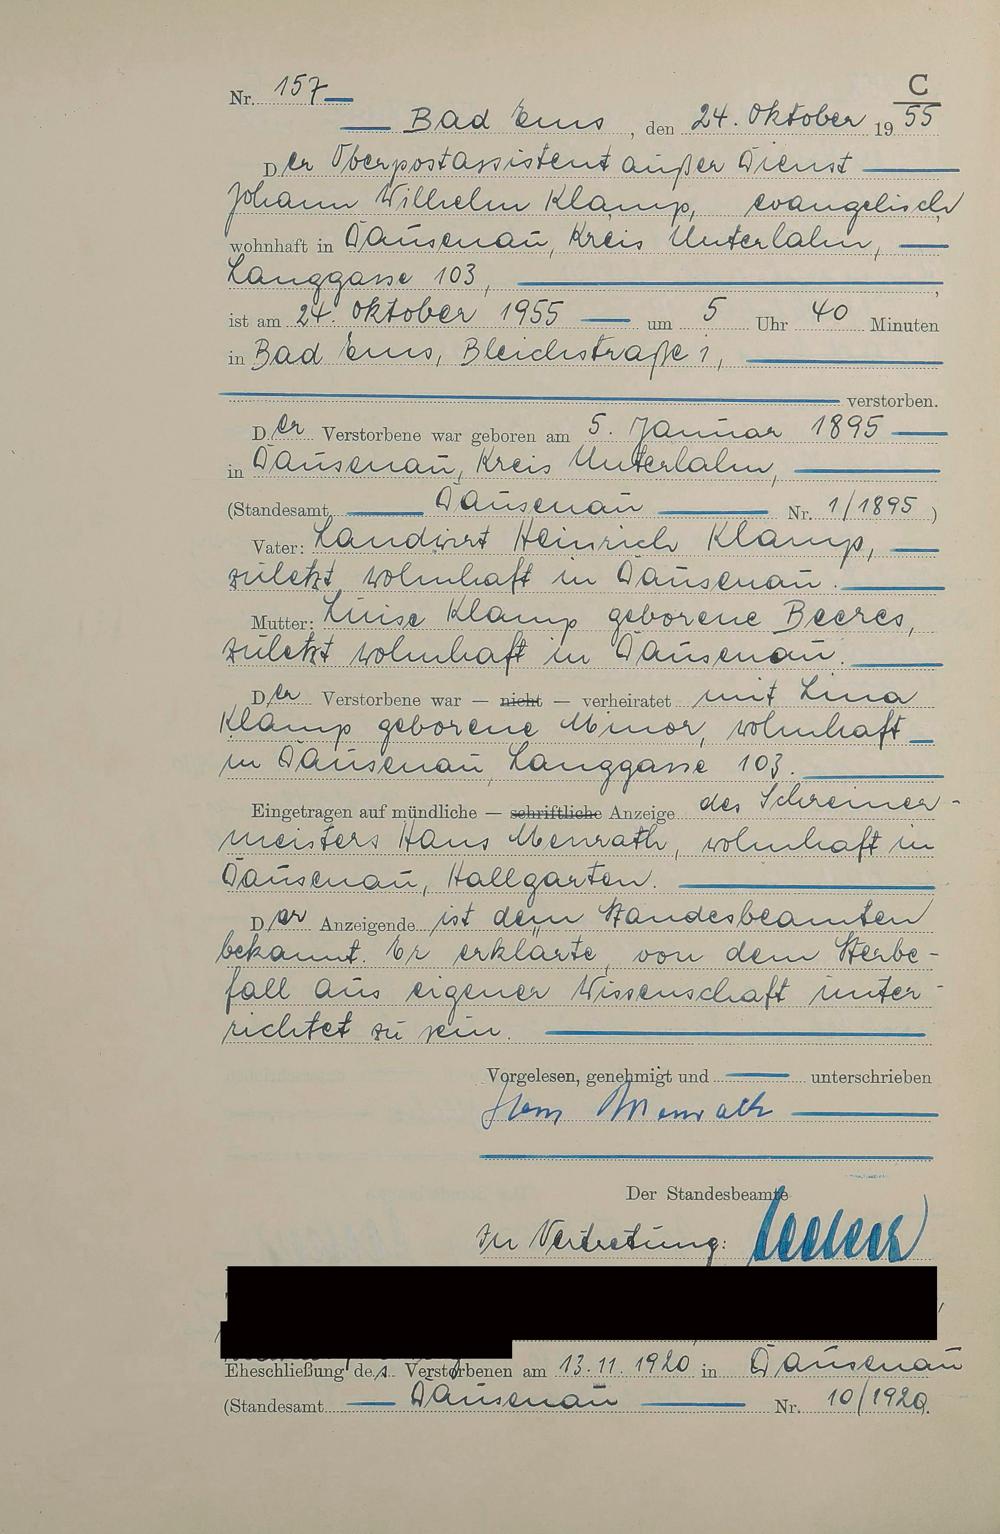 C
Nr. 157
Bad Ems, den 24. Oktober 1955
Der Oberpostassistent außer Dienst
Johann Wilhelm Klamp, evangelisch
wohnhaft in Dausenau, Kreis Unterlahn,
Langgasse 103,
ist am 24. Oktober 1955 um 5 Uhr 40 Minuten
in Bad Ems, Bleichstraße 1,
verstorben.
Der Verstorbene war geboren am 5. Januar 1895
in Dausenau, Kreis Unterlahn,
(Standesamt Dausenau Nr. 1/1895)
Vater: Landwirt Heinrich Klamp,
zuletzt wohnhaft in Dausenau.
Mutter: Luise Klamp geborene Beeres,
zuletzt wohnhaft in Dausenau.
Der Verstorbene war — nicht — verheiratet mit Lina
Klamp geborene Minor, wohnhaft
in Dausenau, Langgasse 103.
Eingetragen auf mündliche — schriftliche Anzeige des Schreiner-
meisters Hans Menrath, wohnhaft in
Dausenau, Hallgarten.
Der Anzeigende ist dem Standesbeamten
bekannt. Er erklärte, von dem Sterbe-
fall aus eigener Wissenschaft unter-
richtet zu sein.
Vorgelesen, genehmigt und unterschrieben
Hans Menrath
Der Standesbeamte
In Vertretung:
Eheschließung des Verstorbenen am 13.11.1920 in Dausenau
(Standesamt Dausenau Nr. 10/1920.